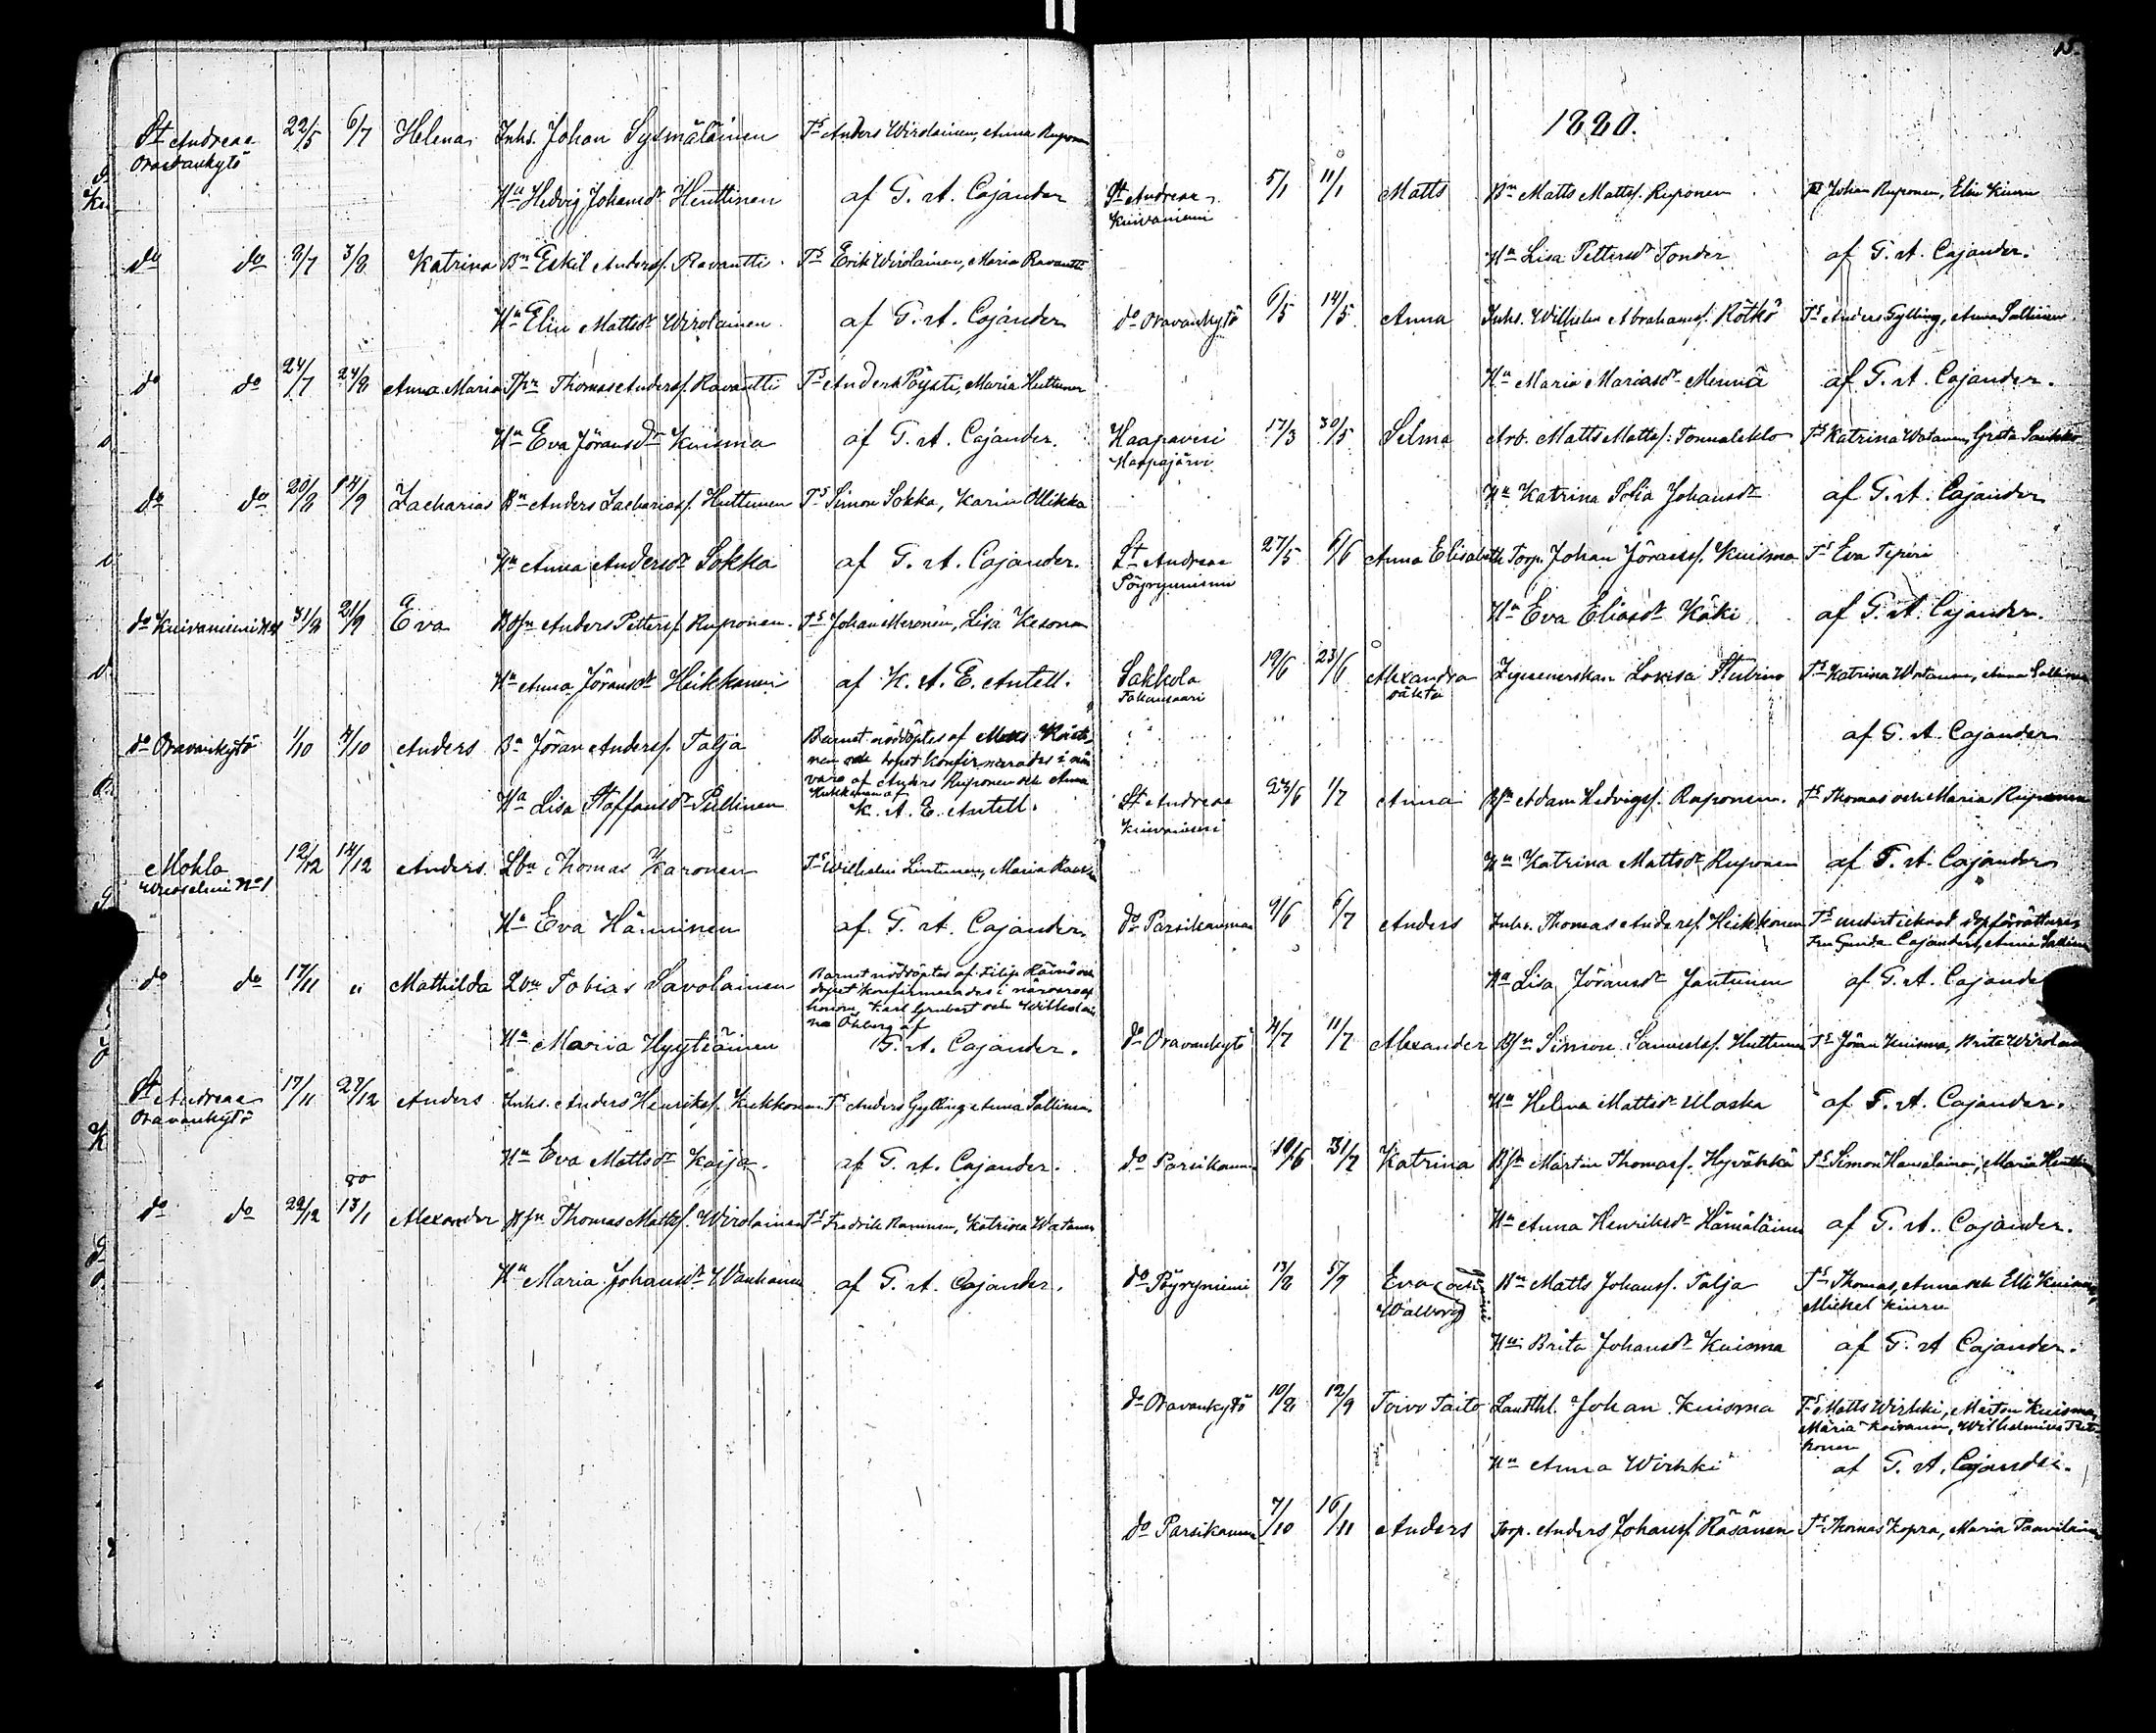 St Andreae 22/5 6/7 Helena Inhs. Johan Sysmäläinen Ts Anders Wirolainen, Anna Ruponen
Oravankytö
Hu Hedvig Johansdr Henttinen af G. A. Cajander
do do 2/7 3/8 Katrina Bn Eskil Andersf. Ravantti Ts Erik Wirolainen, Maria Ravantti
Hu Elin Mattsdr Wirolainen af G. A. Cajander
do do 24/7 24/8 Anna Maria Thomas Andersf. Ravantti Ts Anders Pöysti, Maria Huttunen
Hu Eva Jöransdr Kuisma af G. A. Cajander.
do do 20/8 14/9 Zacharias Bn Anders Zachariasf. Huttunen Ts Simon Sokka, Karin Ollikka
Hu Anna Andersdr Sokka af G. A. Cajander.
do Kuivaniemi 31/8 21/9 Eva Anders Pettersf. Ruponen. Ts Johan Meronen, Lisa Kesonen
Hu Anna Jöransdr Heikkonen af K. A. E. Antell.
do Oravankytö 1/10 4/10 Anders Bn Jöran Andersf. Talja Barnet nöddöptes af Matts
nen och dopet konfirmerades i när
varo af Anders Ruponen och Anna
Hu Lisa Staffansdr Pullinen Kukkonen af
K. A. E. Antell.
Mohla 12/12 14/12 Anders Lbn Thomas Karonen Ts Wilhelm Lintunen, Maria
No 1
Hu Eva Hänninen af G. A. Cajander
do do 17/11 " Mathilda Lbn Tobias Savolainen Barnet nöddöptes af Filip Räinö och
dopet konfirmerades i närvaro af
Karl Grubert och Wilhelmi
na Öhberg af
Hu Maria Hyytiäinen G. A. Cajander.
St Andreae 17/11 27/12 Anders Inhs. Anders Henriksf. Kukkonen Ts Anders Gylling, Anna Sallinen
Oravankytö
Hu Eva Mattsdr Kaija. af G. A. Cajander.
80
do do 22/12 13/1 Alexander Thomas Mattsf. Wirolainen Ts Fredrik Ramunen, Katrina Watanen
Hu Maria Johansdr Wanhanen af G. A. Cajander.
15.
1880.
St Andreae 5/1 11/1 Matts Bn Matts Mattsf. Ruponen Ts Johan Ruponen, Elin Kiuru
Kuivaniemi
Hu Lisa Pettersdr Tonder af G. A. Cajander.
do Oravankytö 6/5 14/5 Anna Inhs. Wilhelm Abrahamsf. Rötkö Ts Anders Gylling, Anna Sallinen
Hu Maria Mariasdr Mennä af G. A. Cajander.
Haapavesi 17/3 30/5 Selma Arb. Matts Mattsf. Ts Katrina Watanen, Greta Paukku
Haapajärvi
Hu Katrina Sofia Johansdr af G. A. Cajander
St Andreae 27/5 6/6 Anna Elisabeth Torp. Johan Jöransf. Kuisma Ts Eva Tepiri
Pöyryniemi
Hu Eva Eliasdr Käki af G. A. Cajander.
Sakkola 19/6 23/6 Alexandra Zigenerskan Lovisa Stubino Ts Katrina Watanen, Anna Sallinen
oäkta
af G. A. Cajander
St Andreae 23/6 1/7 Anna Adam Hedvigsf. Ruponen. Ts Thomas och Maria Ruponen
Kuivaniemi
Hu Katrina Mattsdr Ruponen af G. A. Cajander
do Parsikanmaa 9/6 6/7 Anders Inhs. Thomas Andersf. Heikkonen Ts undertecknad dopförrättare
Fru Gunda Cajander, Anna Sallinen
Hu Lisa Jöransdr Jantunen af G. A. Cajander
do Oravankytö 4/7 11/7 Alexander Simon Samuelsf. Huttunen Ts Jöran Kuisma, Brita Wirolainen
Hu Helena Mattsdr Ulaska af G. A. Cajander.
do 10/6 31/7 Katrina Mårten Thomasf. Hyväkkä Ts Simon Hansalainen, Maria Henttinen
Hu Anna Henriksdr Hämäläinen af G. A. Cajander.
do Pöyryniemi 13/8 5/9 Eva och Bn Matts Johansf. Talja Ts Thomas, Anna och Elli Kuisma,
Walborg Mickel Kiuru
Hu Brita Johansdr Kuisma af G. A. Cajander.
do Oravankytö 10/8 12/9 Toivo Taito Landthl. Johan Kuisma Ts Matts Wirkki, Mårten Kuisma,
Maria Koivunen, Wilhelmina
konen
Hu Anna Wirkki af G. A. Cajander.
do 7/10 16/11 Anders Torp. Anders Johansf. Räsänen Ts Thomas Kopra, Maria Paavilainen